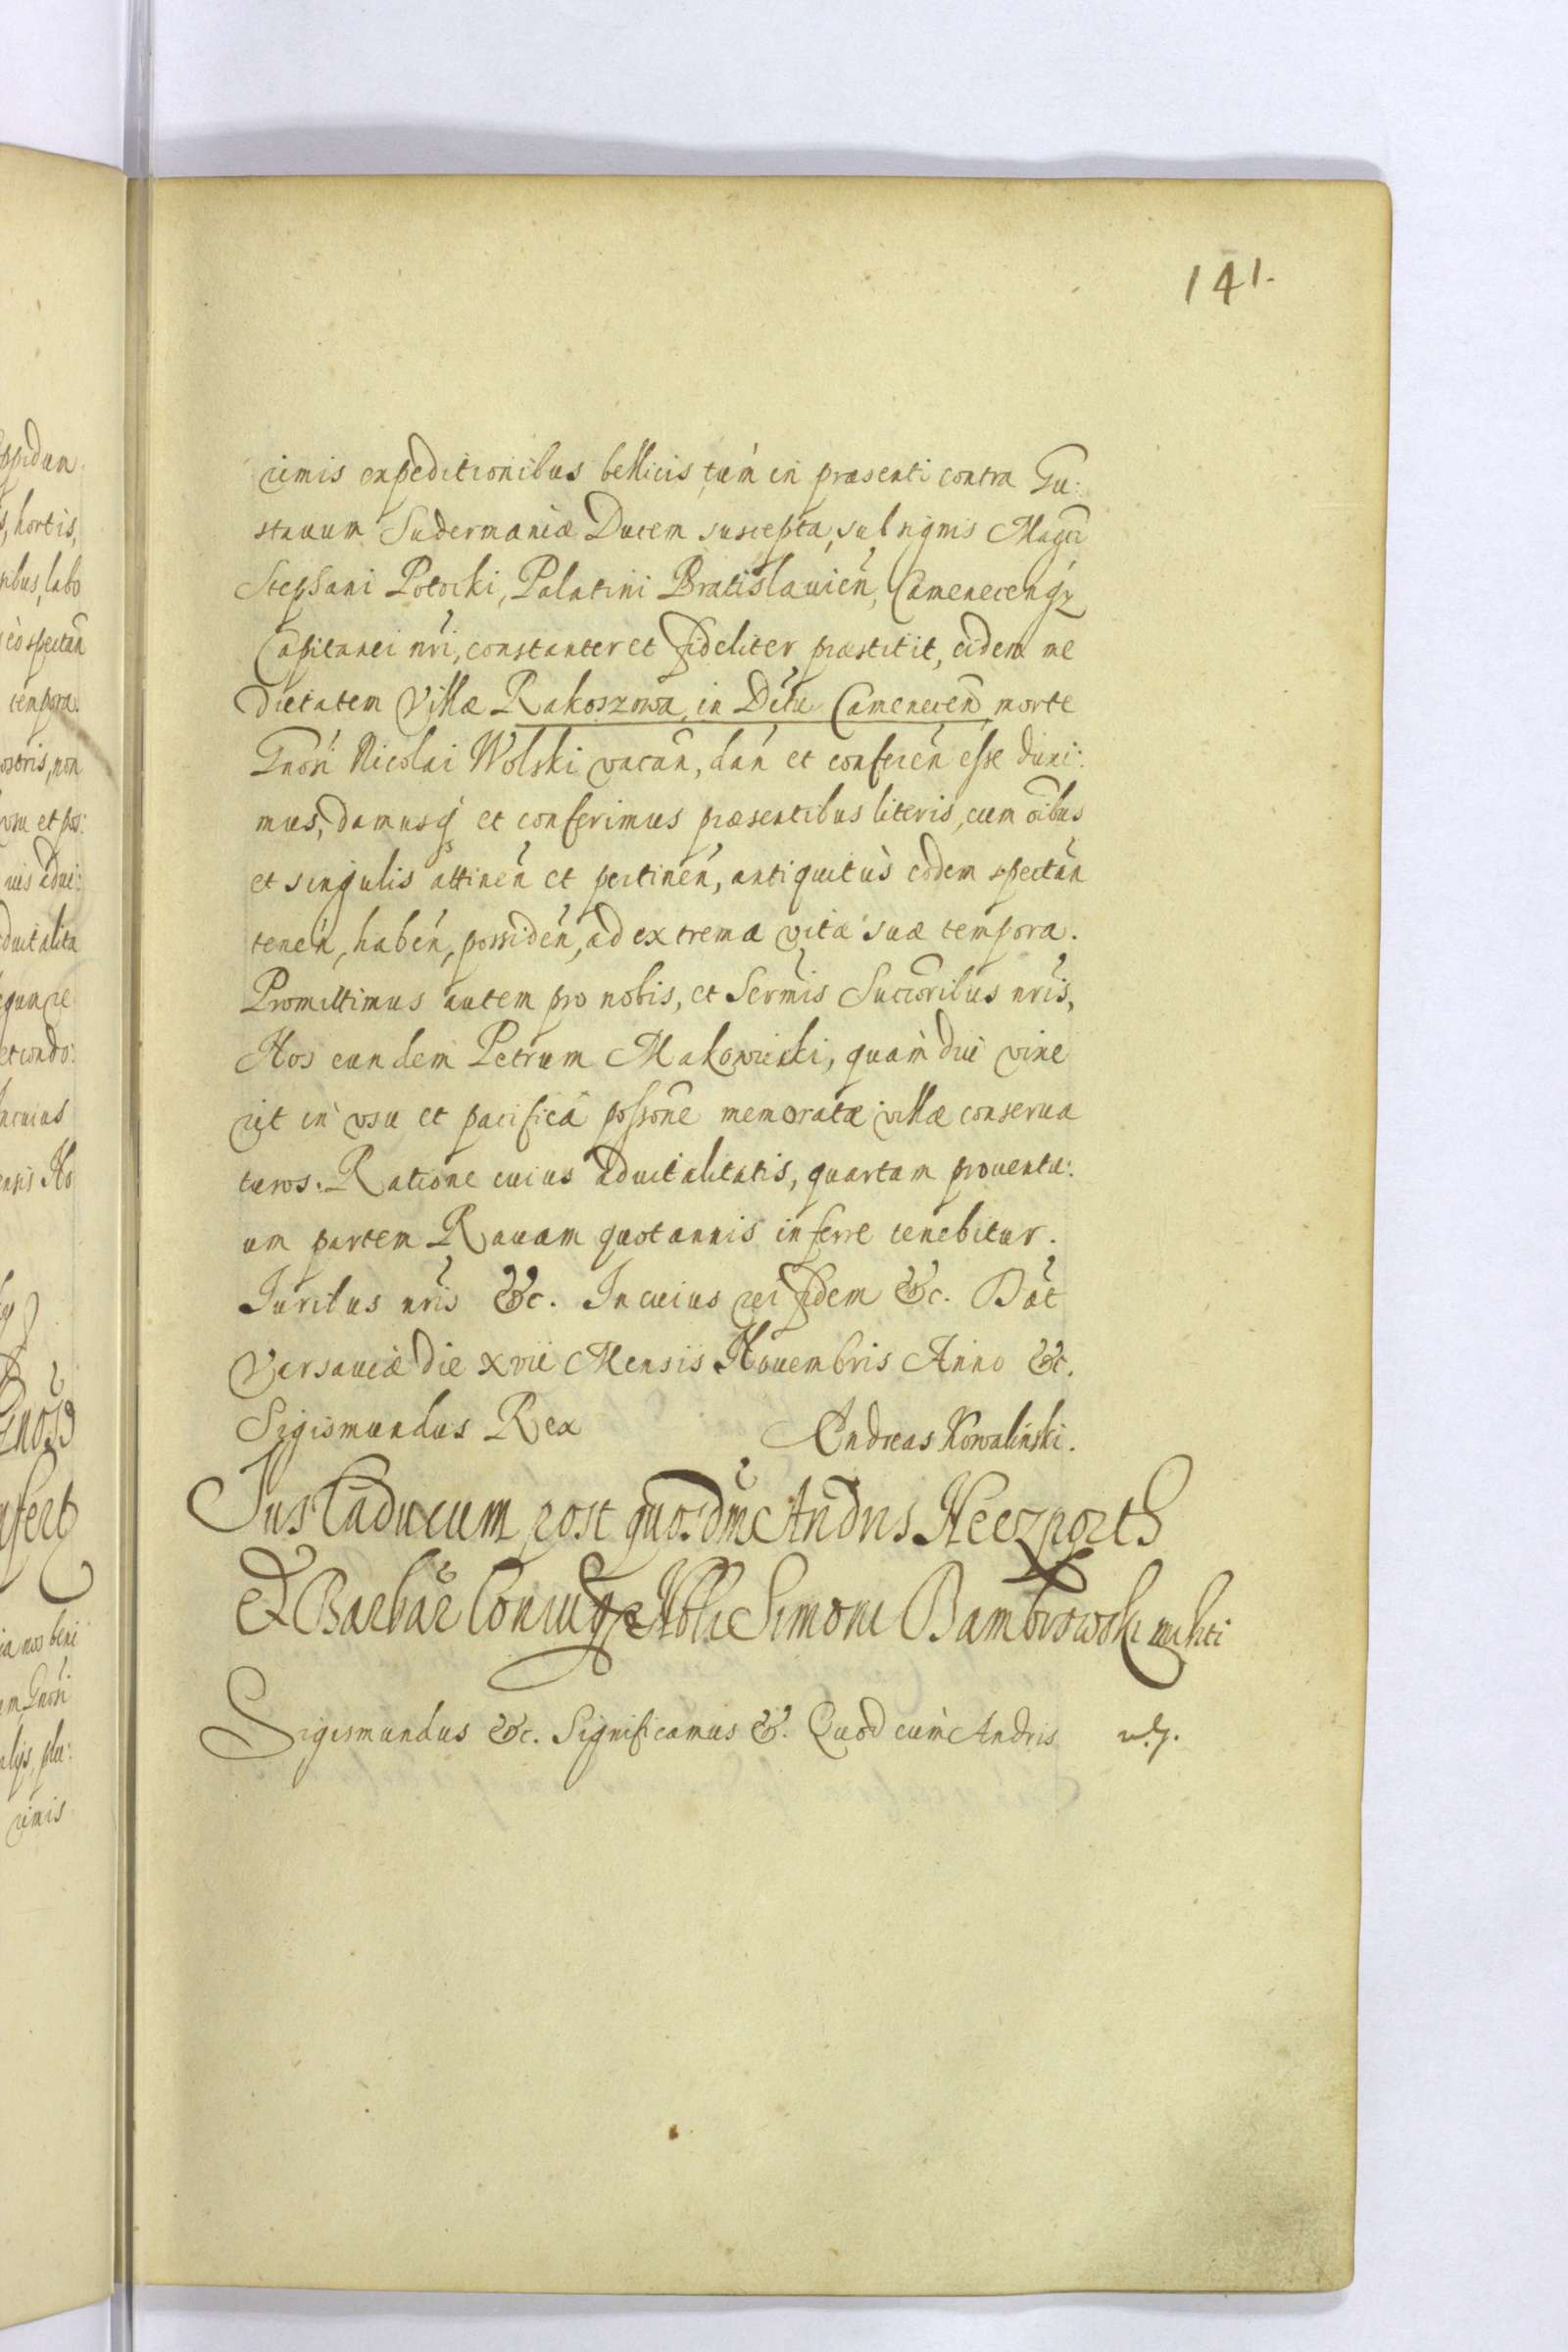 141.
rimis expeditionibus bellicis, tum in præsenti contra Gu:
stauum Sudermaniæ Ducem suscepta, sub signis Magci
Stephani Potocki, Palatini Bratislauien, Camenecenq3
Capitanei nri, constanter et fideliter præstitit, eidem me
dietatem Villæ Rakoszowa in Dctu Camenecen morte
Gnosi Nicolai Wolski vacan, dan et conferen esse duxi:
mus, damusq3 et conferimus præsentibus literis, cum oibus
et singulis attinen et pertinen, antiquitùs eodem spectan
tenen, haben, possiden, ad extrema vitæ suæ tempora.
Promittimus autem pro nobis, et Sermis Succoribus nris,
Nos eundem Petrum Makowieski, quàm diu vixe
rit in vsu et pacifica possone memoratæ villæ conserua
turos. Ratione cuius aduitalitatis, quartam prouentu:
um partem Rauam quotannis inferre tenebitur.
Iuribus nris &c. In cuius rei fidem &c. Dat
Varsauiæ die xvii Mensis Nouembris Anno &c.
Sigismundus Rex Andreas Kowaliński.
Ius Caducum post gnosdm Andris Heerzports
Et Barbar Coniug Nobli Simoni Dambrowski militi
Sigismundus &c. Significamus &. Quod cùm Andris
ppidan
s, hortis,
ribus, labo
eò spectan
tempora.
ostris, non
vsu et pos:
uis adui:
duitalita
et condo:
In cuius
ensis No
Gnoso
nfert
ia nos beni
m Gnosi
alijs, plu:
rimis